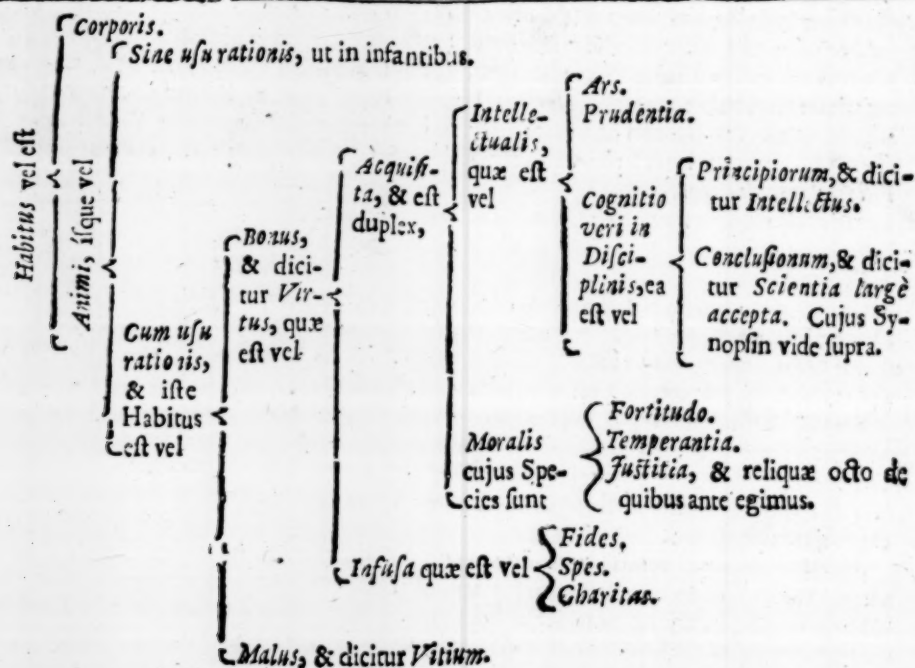 Habitus vel est
Corporis.
Animi, isque vel
Sine usu rationis, ut in infantibus.
Cum usu
rationis,
& iste
Habitus
est vel
Bonus,
& dici-
tur Vir-
tus, quæ
est vel
Acquisi-
ta, & est
duplex,
Intelle-
ctualis,
quæ est
vel
Ars.
Prudentia.
Cognitio
veri in
Disci-
plinis, ea
est vel
Principiorum, & dici-
tur Intellectus.
Conclusionum, & dici-
tur Scientia largè
accepta. Cujus Sy-
nopsin vide supra.
Moralis
cujus Spe-
cies sunt
Fortitudo.
Temperantia.
Justitia, & reliquæ octo de
quibus ante egimus.
Infusa quæ est vel
Fides.
Spes.
Charitas.
Malus, & dicitur Vitium.